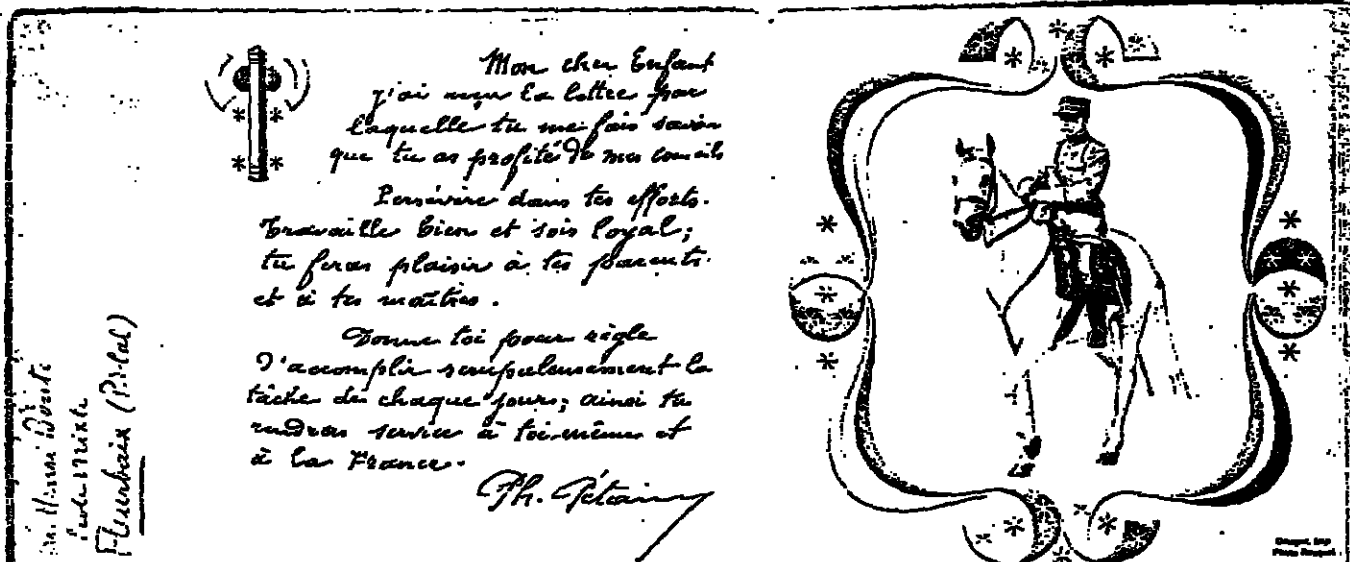 Mon cher Enfant
j'ai reçu ta lettre par
laquelle tu me fais savoir
que tu as profité de mes conseils
Persévère dans tes efforts.
Travaille bien et sois loyal;
tu feras plaisir à tes parents
et à tes maîtres.
Donne toi pour règle
d'accomplir scrupuleusement la
tâche de chaque jour; ainsi tu
rendras service à toi-même et
à la France.
Ph. Pétain
École mixte
Fleurbaix (P. de Cal)